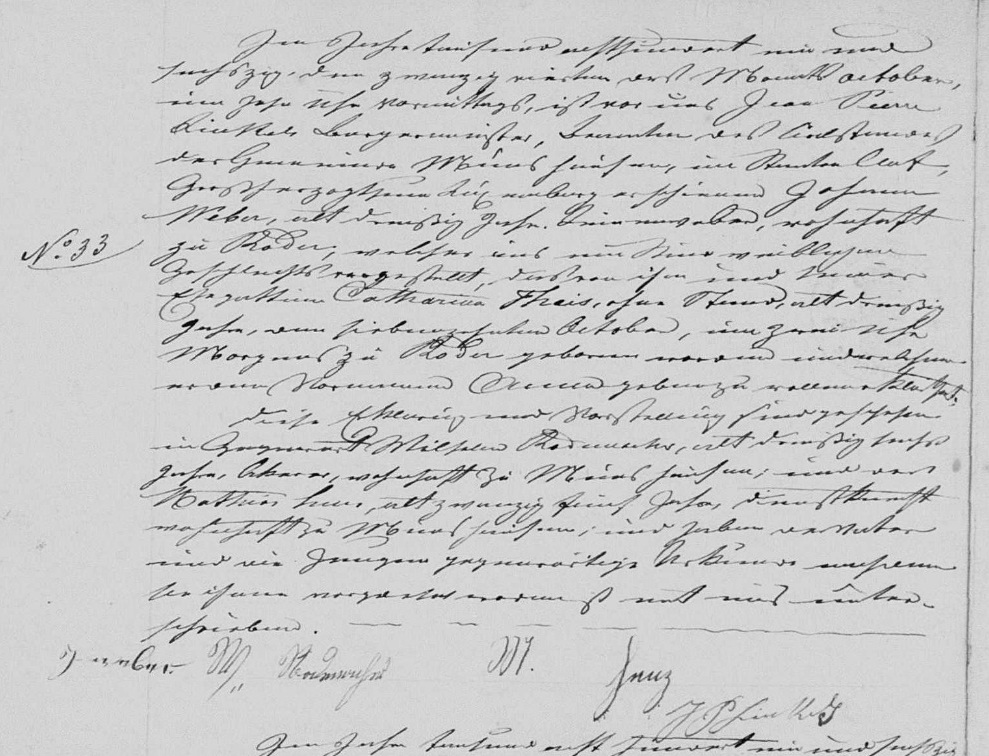 Im Jahre tausend achthundert ein und
sechszig, den zwanzig vierten des Monats october,
um zehn Uhr vormittags, ist vor uns Jean Pierre
Bürgermeister, Beamten des Civilstandes
der Gemeinde Münshausen, im Kanton Clerf,
Großherzogthum Luxemburg erschienen Johann
Weber, alt dreißig Jahr, Leinenweber, wohnhaft
No 33
zu Roder, welcher uns ein Kind weiblichen
Geschlechts vorgestellt, das von ihm und seiner
Ehegattinn Catharina Theis, ohne Stand, alt dreißig
Jahr, den siebenzehnten October, um zwei Uhr
Morgens zu Roder geboren worden und welchem
er den Vornamen Anna geben zu wollen erklärt hat.
Diese Erklärung und Vorstellung sind geschehen
in Gegenwart Wilhelm Rodemacher, alt dreißig sechs
Jahr, Ackerer, wohnhaft zu Münshausen, und des
Mathias alt zwanzig fünf Jahr, Dienstknecht
wohnhaft zu Münshausen, und haben der Vater
und die Zeugen gegenwärtige Urkunde nachdem
sie ihnen vorgelesen worden ist mit uns unter-
schrieben.
J weber W. Rodemacher M.